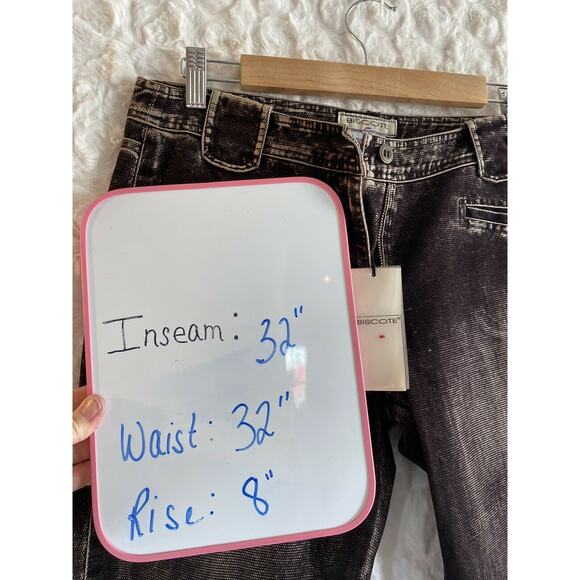 BISCOTE
BISCOTE®
Inseam: 32"
Waist: 32"
Rise: 8"